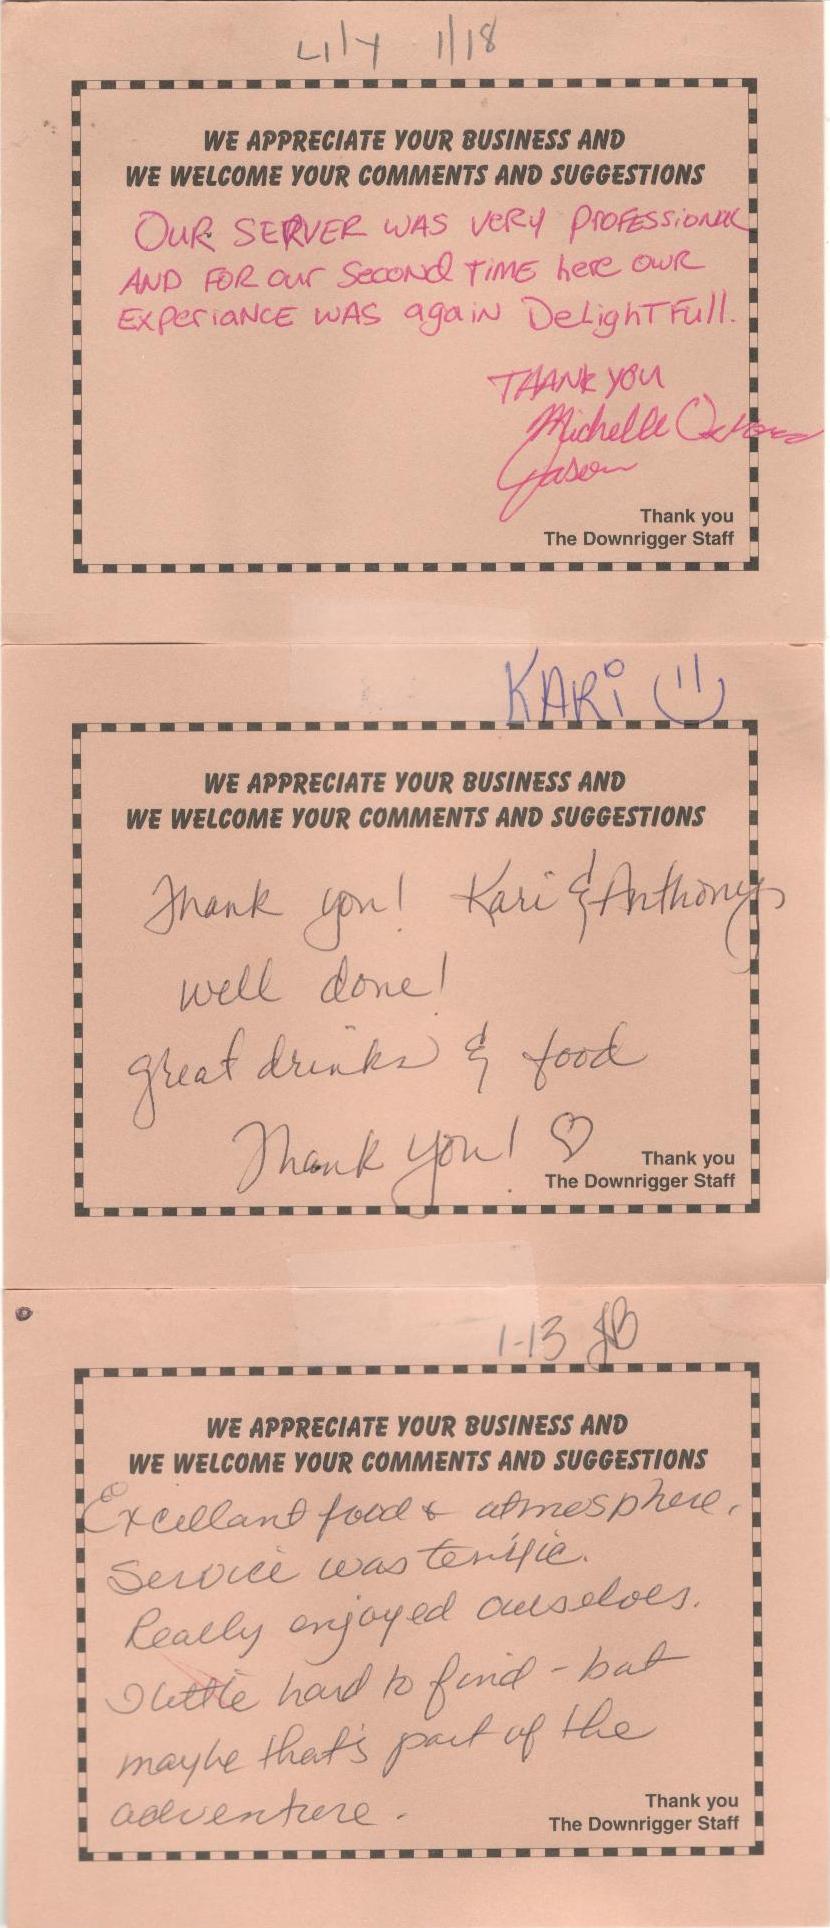 Lily 1/18
WE APPRECIATE YOUR BUSINESS AND
WE WELCOME YOUR COMMENTS AND SUGGESTIONS
OUR SERVER WAS VERY PROFESSIONAL
AND FOR our Second TIME here OUR
EXPERIANCE WAS again DELIGHTFull.
THANK YOU
Michelle
Jason
Thank you
The Downrigger Staff
KARi
WE APPRECIATE YOUR BUSINESS AND
WE WELCOME YOUR COMMENTS AND SUGGESTIONS
Thank you! Kari & Anthony
well done!
great drinks & food
Thank you! ♡
Thank you
The Downrigger Staff
1-13 JB
WE APPRECIATE YOUR BUSINESS AND
WE WELCOME YOUR COMMENTS AND SUGGESTIONS
Excellant food & atmosphere.
Service was terrific.
Really enjoyed ourselves.
little hard to find - but
maybe that's part of the
adventure.
Thank you
The Downrigger Staff